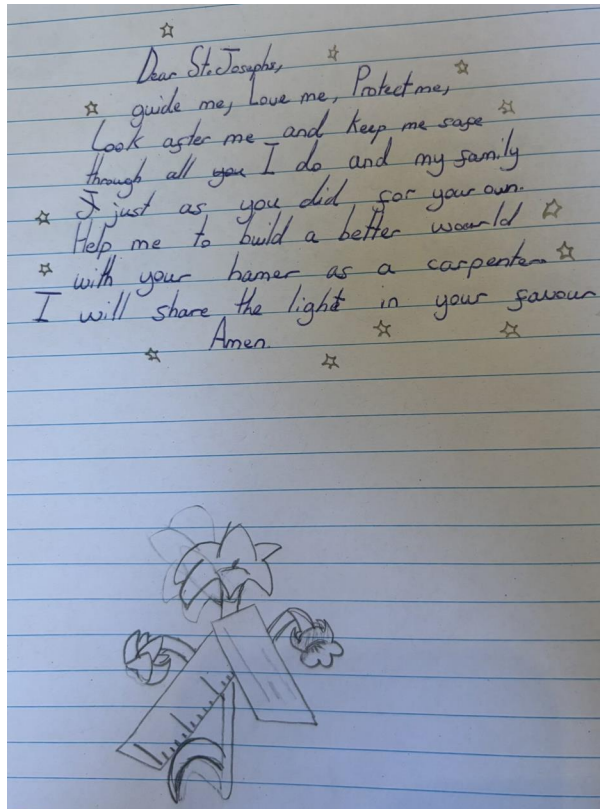 Dear St. Josephs,
guide me, Love me, Protect me,
Look after me and keep me safe
through all you I do and my family
I just as you did, for your own.
Help me to build a better woorld
with your hamer as a carpenter.
I will share the light in your favour
Amen.